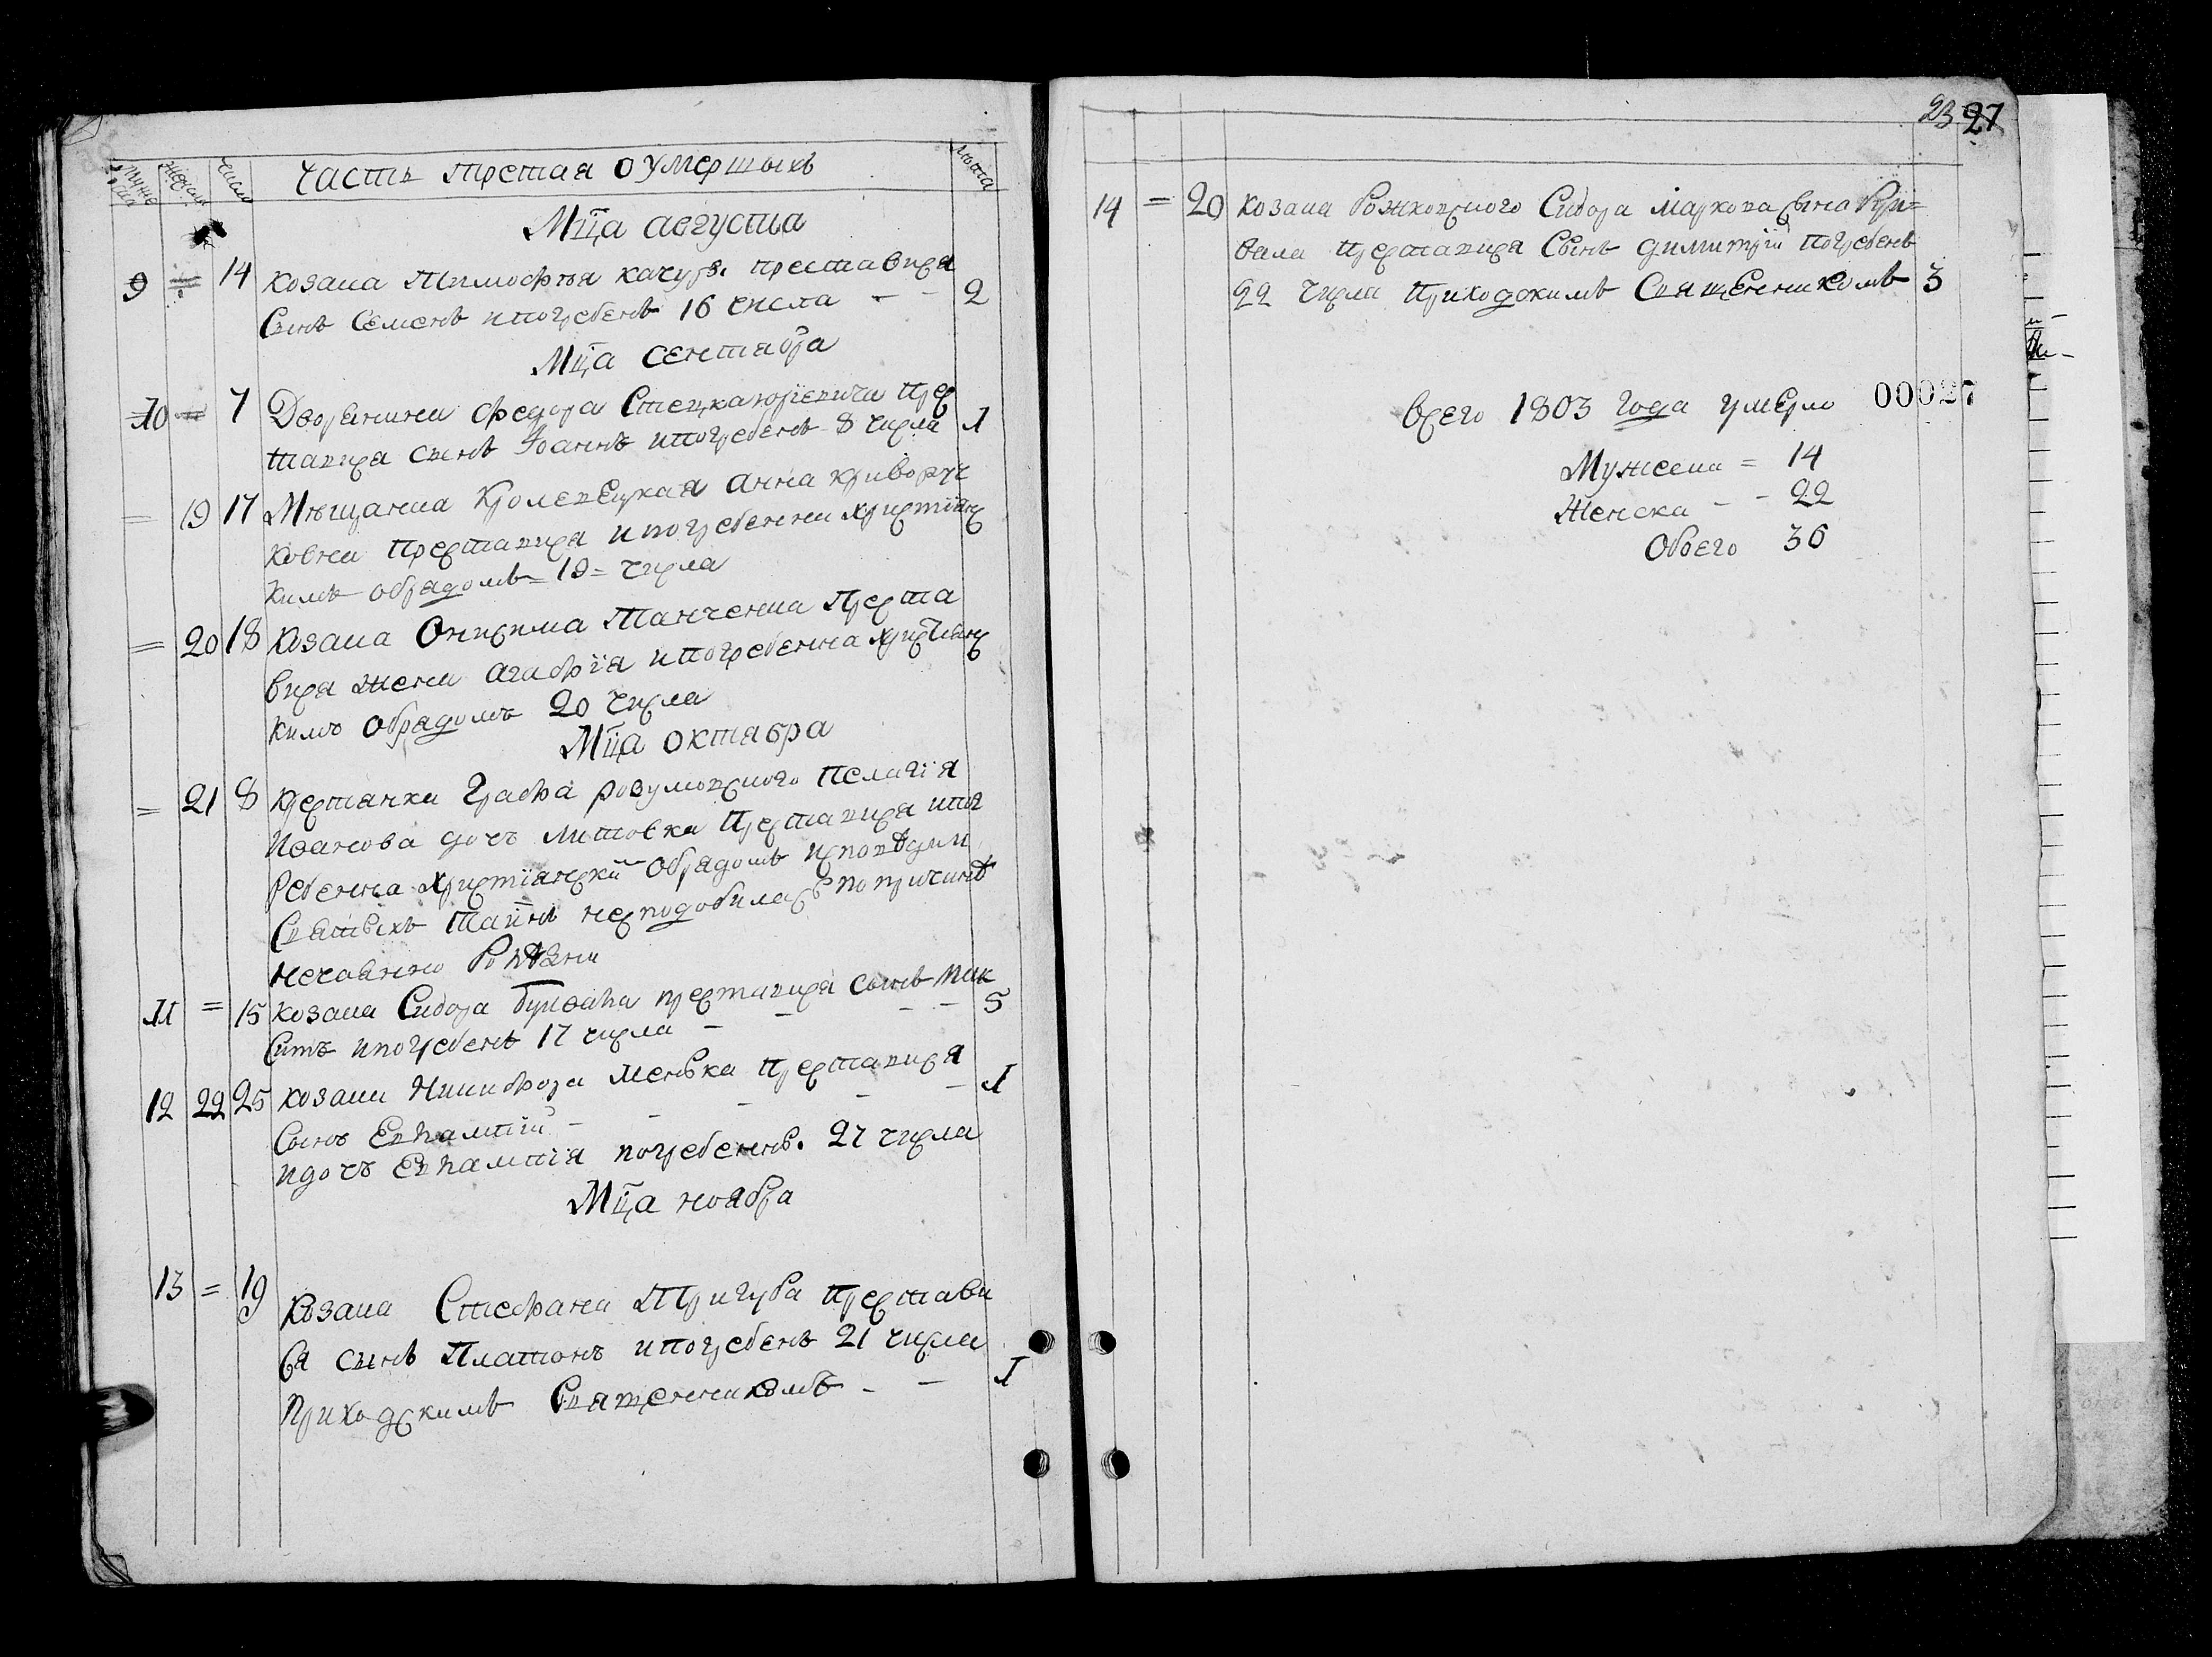 Мужеска Женска Число Часть третая о умершыхъ лѣта
Мца августа
9 = 14 козака Тимофѣя качура преставися
Сынъ Семенъ и погребенъ 16 числа - - 2
Мца сентабра
10 = 7 Дворянина Федора Стецкаюріевича Прес
тавися сынъ Іоаннъ и погребенъ 8 числа 1
= 19 17 Мѣщанка Кролевецкая анна криворуч
ковна Преставися и погребенна Христіянс
кимъ обрядомъ = 19 = числа
= 20 18 Козака Онисима Танченка Преста
вися жена агафія и погребенна христіянс
кимъ Обрядомъ 20 числа
Мца октабра
= 21 8 Крестянки Графа розумовского Пелагія
Иванова дочь литовка Преставися и пог
ребенна Христіянски Обрядомъ исповѣди и
Святыхъ таинъ несподобилась по причинѣ
нечаянно
11 = 15 козака Сидора преставися сынъ Мак
Симъ и погребенъ 17 числа - - - - 5
12 22 25 козака Никифора Менька Преставися
Сынъ Евлампій - - - - - 1
и дочь Евлампія погребеннъ. 27 числа
Мца ноября
13 = 19 Козака Стефана Тригуба Престави
ся сынъ Платонъ и погребенъ 21 числа
Приходскимъ Священникомъ - - 1
23 27
14 = 20 козака Рожковского Сидора Маркова сына
Преставися Сынъ димитрій погребенъ
22 числа Приходскимъ Священникомъ 3
00027
всего 1803 года умерло
Мужеска = 14
Женска - - 22
Обоего 36